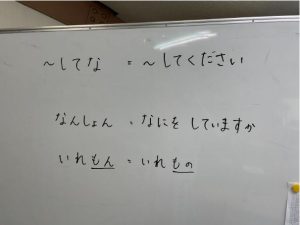 ～してな = ～してください
なんしょん = なにをしていますか
いれもん = いれもの